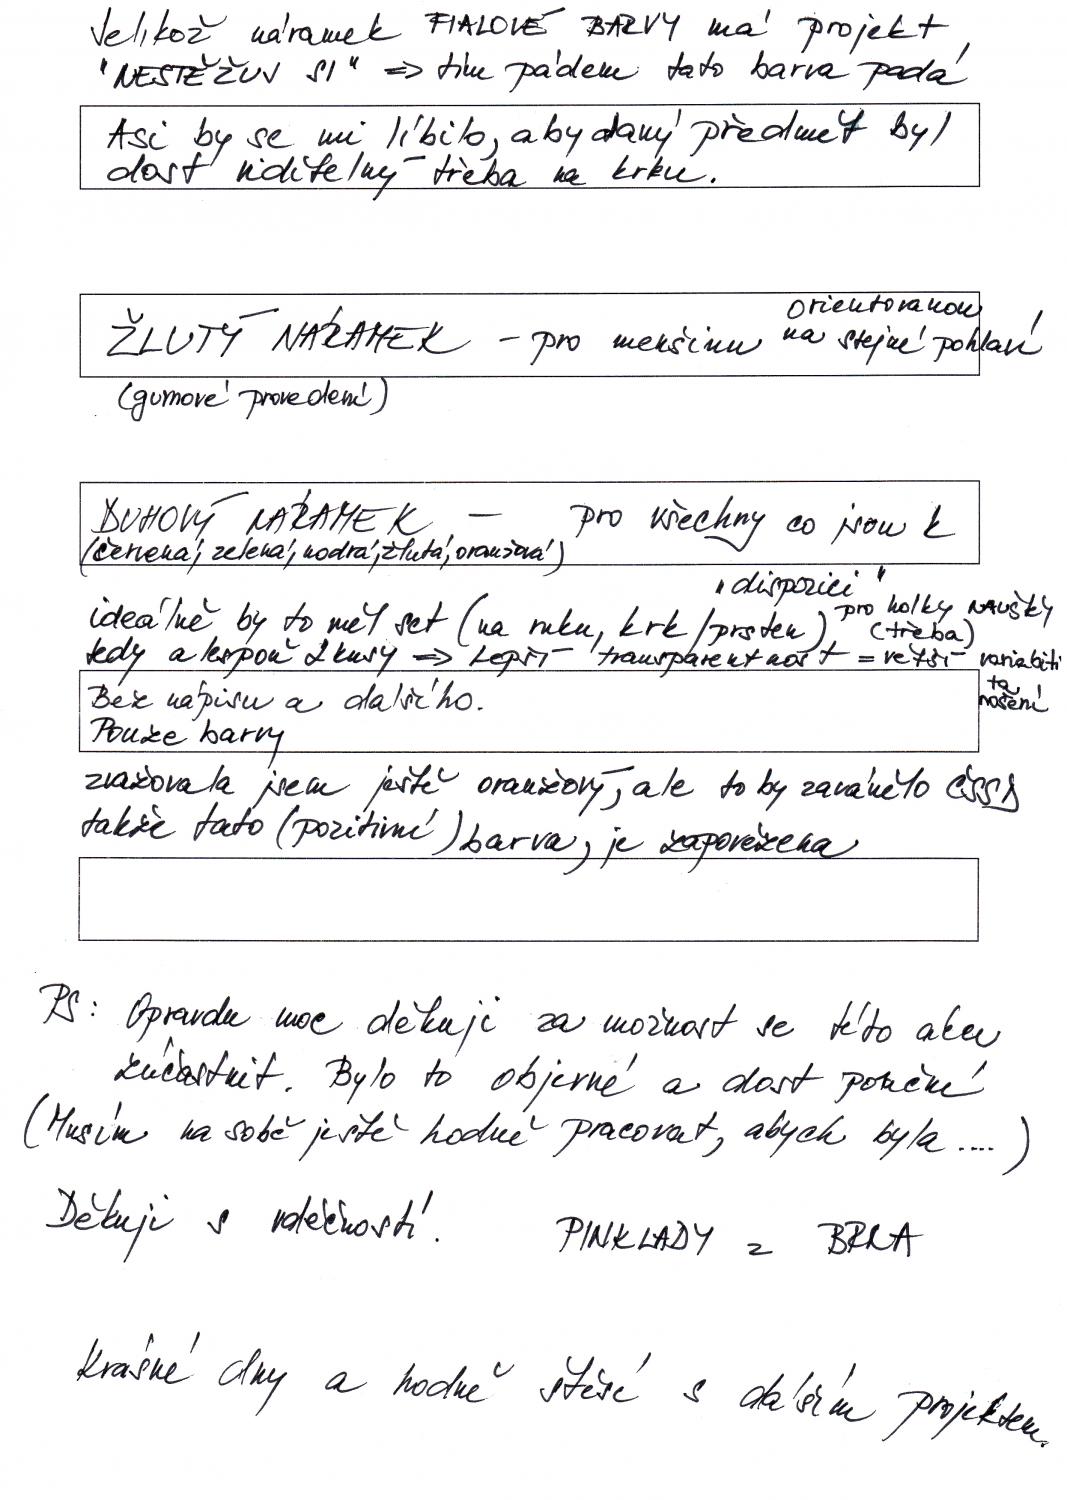 Jelikož náramek FIALOVÉ BARVY má projekt
"NESTĚŽUJ SI" => tím pádem tato barva padá
Asi by se mi líbilo, aby daný předmět byl
dost viditelný třeba na krku.
ŽLUTÝ NÁRAMEK - pro menšinu orientovanou na stejné pohlaví
(gumové provedení)
DUHOVÝ NÁRAMEK - pro všechny co jsou k
(červená, zelená, modrá, žlutá, oranžová)
"dispozici"
ideálně by to měl set (na ruku, krk/prsten), pro holky NAUŠKY (třeba)
tedy alespoň 2 kusy => Lepší transparentnost = větší variabilita nošení
Bez nápisu a dalšího.
Pouze barvy
zvažovala jsem ještě oranžový, ale to by zavánělo ČSSD
takže tato (pozitivní) barva, je zapovězena
PS: Opravdu moc děkuji za možnost se této akce
zúčastnit. Bylo to objevné a dost poučné
(Musím na sobě ještě hodně pracovat, abych byla ....)
Děkuji s vděčností. PINKLADY z BRNA
Krásné dny a hodně štěstí s dalším projektem.